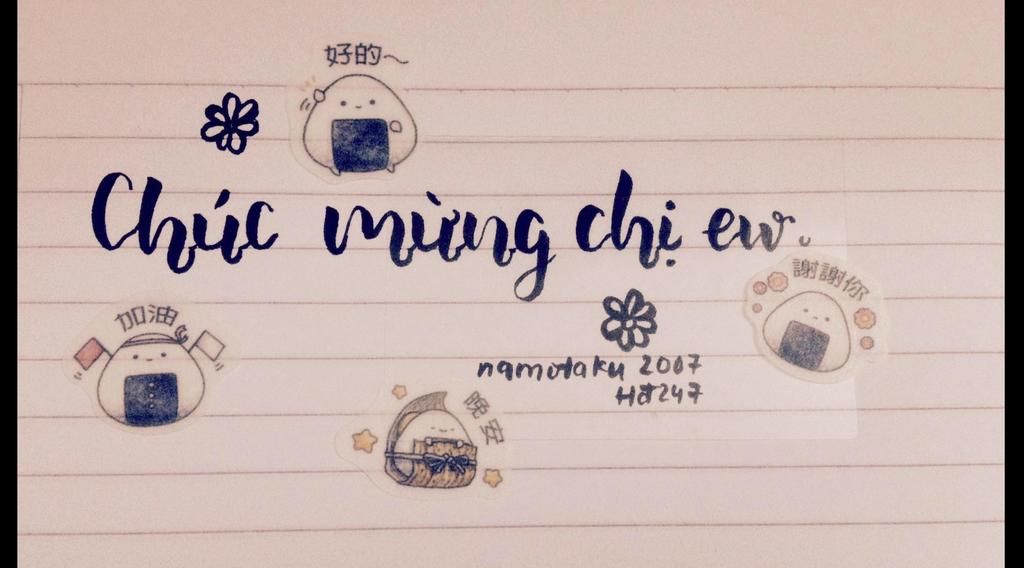 好的～
Chúc mừng chị ew.
謝謝你
加油
namotaku 2007
Hđ247
晚安